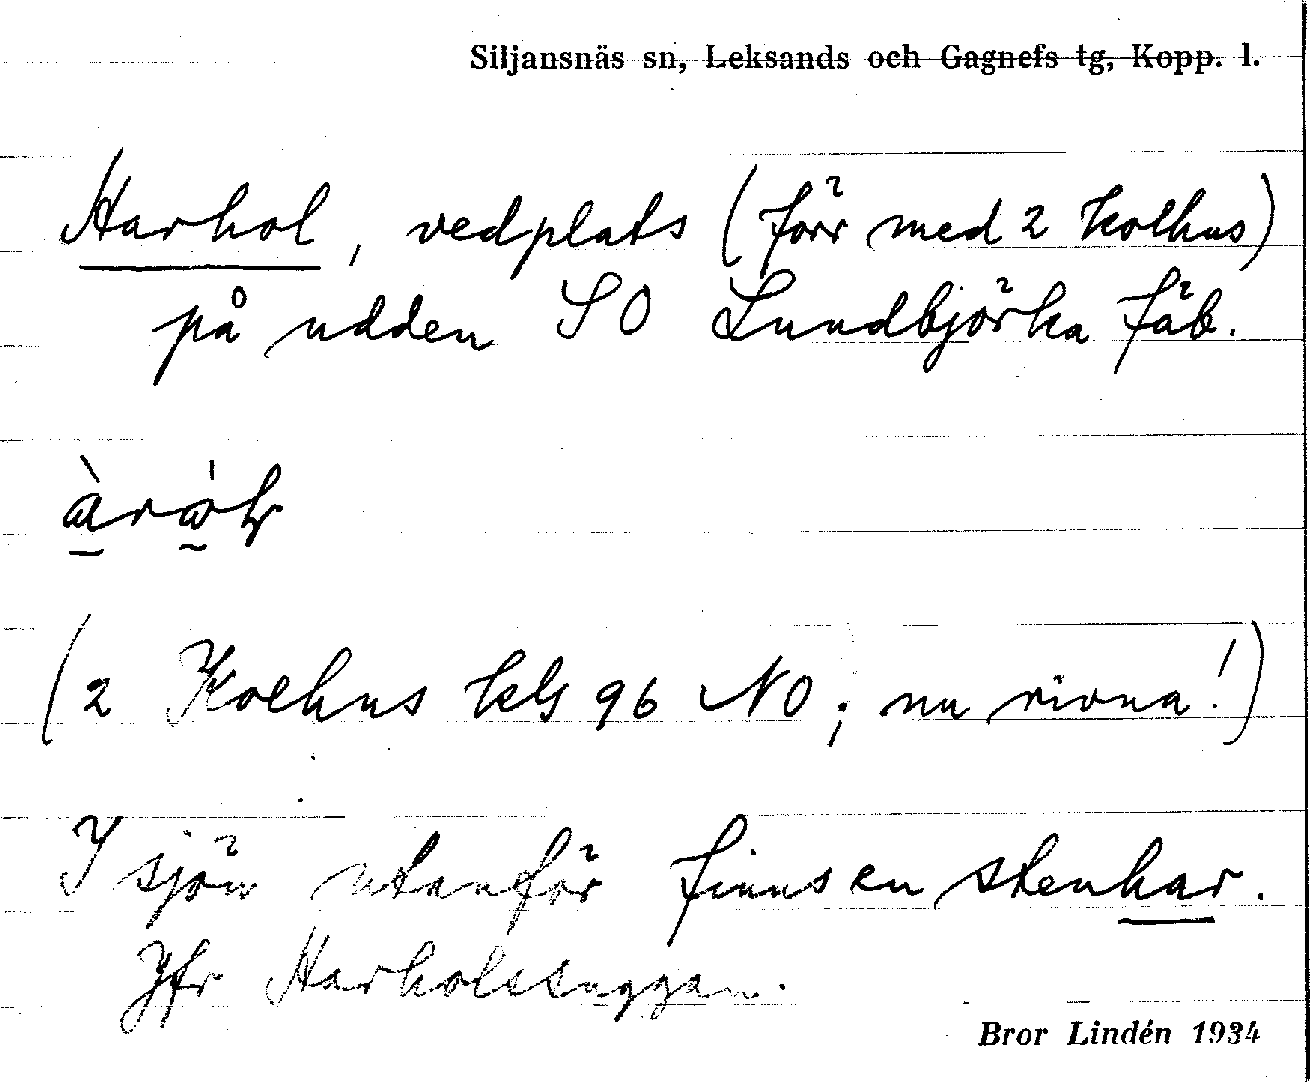 Siljansnäs sn, Leksands och Gagnefs tg, Kopp. l.
Harhol, vedplats (förr med 2 kolhus)
på udden SO Lundbjörka fäb.
(2 Kolhus bls 96 NO; nu rivna!)
I sjön utanför finns en stenhar.
Jfr Harholssuggan.
Bror Lindén 1934